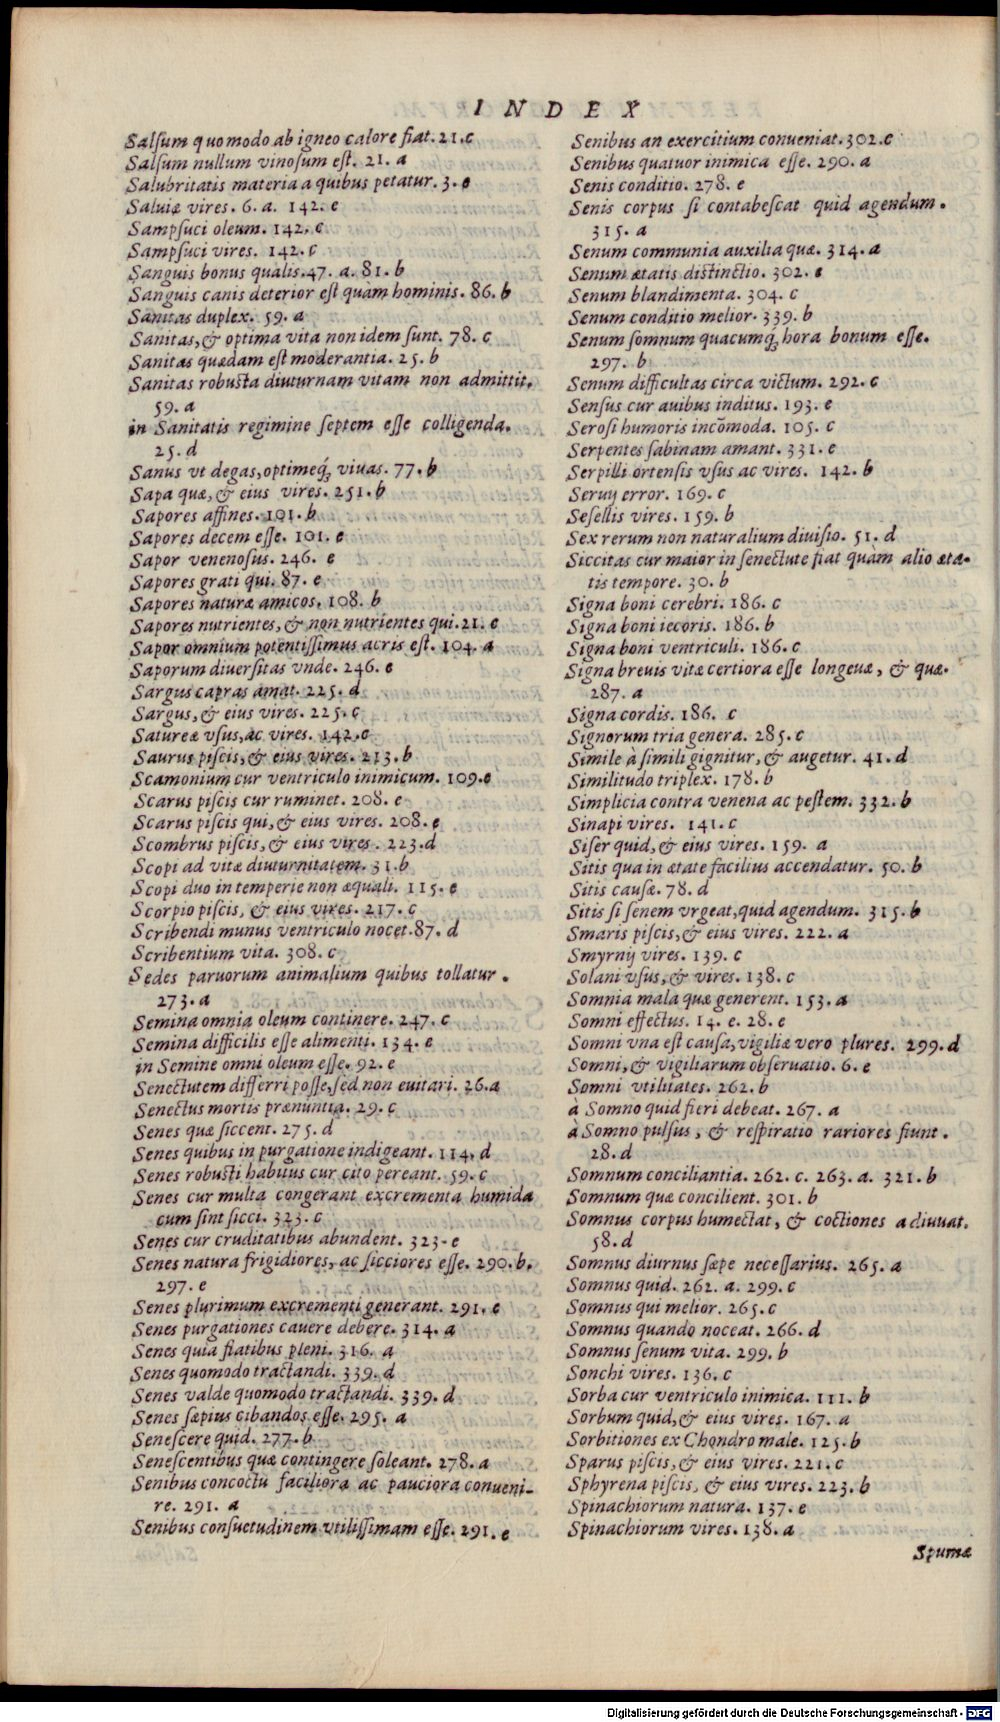 INDEX
Salſum quomodo ab igneo calore fiat. 21. c
Salſum nullum vinoſum eſt. 21. a
Salubritatis materia a quibus petatur. 3. e
Saluiæ vires. 6. a. 142. e
Sampſuci oleum. 142. c
Sampſuci vires. 142. c
Sanguis bonus qualis. 47. a. 81. b
Sanguis canis deterior eſt quàm hominis. 86. b
Sanitas duplex. 59. a
Sanitas, & optima vita non idem ſunt. 78. c
Sanitas quædam eſt moderantia. 25. b
Sanitas robuſta diuturnam vitam non admittit.
59. a
in Sanitatis regimine ſeptem eſſe colligenda.
25. d
Sanus vt degas, optimeq́; viuas. 77. b
Sapa quæ, & eius vires. 251. b
Sapores affines. 101. b
Sapores decem eſſe. 101. e
Sapor venenoſus. 246. e
Sapores grati qui. 87. e
Sapores naturæ amicos. 108. b
Sapores nutrientes, & non nutrientes qui. 21. e
Sapor omnium potentiſſimus acris eſt. 104. a
Saporum diuerſitas vnde. 246. e
Sargus capras amat. 225. d
Sargus, & eius vires. 225. c
Satureæ vſus, ac vires. 142. c
Saurus piſcis, & eius vires. 213. b
Scamonium cur ventriculo inimicum. 109. e
Scarus piſcis cur ruminet. 208. e
Scarus piſcis qui, & eius vires. 208. e
Scombrus piſcis, & eius vires. 223. d
Scopi ad vitæ diuturnitatem. 31. b
Scopi duo in temperie non æquali. 115. e
Scorpio piſcis, & eius vires. 217. c
Scribendi munus ventriculo nocet. 87. d
Scribentium vita. 308. c
Sedes paruorum animalium quibus tollatur.
273. a
Semina omnia oleum continere. 247. c
Semina difficilis eſſe alimenti. 134. e
in Semine omni oleum eſſe. 92. e
Senectutem differri poſſe, ſed non euitari. 26. a
Senectus mortis prænuntia. 29. c
Senes quæ ſiccent. 275. d
Senes quibus in purgatione indigeant. 114. d
Senes robuſti habitus cur cito pereant. 59. c
Senes cur multa congerant excrementa humida
cum ſint ſicci. 323. c
Senes cur cruditatibus abundent. 323. e
Senes natura frigidiores, ac ſicciores eſſe. 290. b.
297. e
Senes plurimum excrementi generant. 291. e
Senes purgationes cauere debere. 314. a
Senes quia flatibus pleni. 316. a
Senes quomodo tractandi. 339. d
Senes valde quomodo tractandi. 339. d
Senes ſæpius cibandos eſſe. 295. a
Seneſcere quid. 277. b
Seneſcentibus quæ contingere ſoleant. 278. a
Senibus concoctu faciliora ac pauciora conueni-
re. 291. a
Senibus conſuetudinem vtiliſſimam eſſe. 291. e
Senibus an exercitium conueniat. 302. c
Senibus quatuor inimica eſſe. 290. a
Senis conditio. 278. e
Senis corpus ſi contabeſcat quid agendum.
315. a
Senum communia auxilia quæ. 314. a
Senum ætatis diſtinctio. 302. e
Senum blandimenta. 304. c
Senum conditio melior. 339. b
Senum ſomnum quacumq́; hora bonum eſſe.
297. b
Senum difficultas circa victum. 292. c
Senſus cur auibus inditus. 193. e
Seroſi humoris incõmoda. 105. c
Serpentes ſabinam amant. 331. e
Serpilli ortenſis vſus ac vires. 142. b
Seruij error. 169. c
Seſellis vires. 159. b
Sex rerum non naturalium diuiſio. 51. d
Siccitas cur maior in ſenectute fiat quàm alio æta-
tis tempore. 30. b
Signa boni cerebri. 186. c
Signa boni iecoris. 186. b
Signa boni ventriculi. 186. c
Signa breuis vitæ certiora eſſe longeuæ, & quæ.
287. a
Signa cordis. 186. c
Signorum tria genera. 285. c
Simile à ſimili gignitur, & augetur. 41. d
Similitudo triplex. 178. b
Simplicia contra venena ac peſtem. 332. b
Sinapi vires. 141. c
Siſer quid, & eius vires. 159. a
Sitis qua in ætate facilius accendatur. 50. b
Sitis cauſæ. 78. d
Sitis ſi ſenem vrgeat, quid agendum. 315. b
Smaris piſcis, & eius vires. 222. a
Smyrnij vires. 139. c
Solani vſus, & vires. 138. c
Somnia mala quæ generent. 153. a
Somni effectus. 14. e. 28. e
Somni vna eſt cauſa, vigiliæ vero plures. 299. d
Somni, & vigiliarum obſeruatio. 6. e
Somni vtilitates. 262. b
à Somno quid fieri debeat. 267. a
à Somno pulſus, & reſpiratio rariores fiunt.
28. d
Somnum conciliantia. 262. c. 263. a. 321. b
Somnum quæ concilient. 301. b
Somnus corpus humectat, & coctiones adiuuat.
58. d
Somnus diurnus ſæpe neceſſarius. 265. a
Somnus quid. 262. a. 299. c
Somnus qui melior. 265. c
Somnus quando noceat. 266. d
Somnus ſenum vita. 299. b
Sonchi vires. 136. c
Sorba cur ventriculo inimica. 111. b
Sorbum quid, & eius vires. 167. a
Sorbitiones ex Chondro male. 125. b
Sparus piſcis, & eius vires. 221. c
Sphyrena piſcis, & eius vires. 223. b
Spinachiorum natura. 137. e
Spinachiorum vires. 138. a
Spumæ
Digitalisierung gefördert durch die Deutsche Forschungsgemeinschaft - DFG